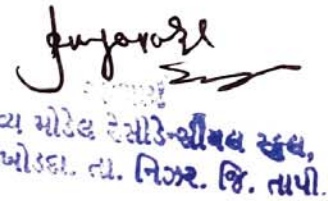 આચાર્ય
વ્ય મોડેલ રેસીડેન્શીયલ સ્કુલ,
ખોડદા. તા. નિઝર. જિ. તાપી.